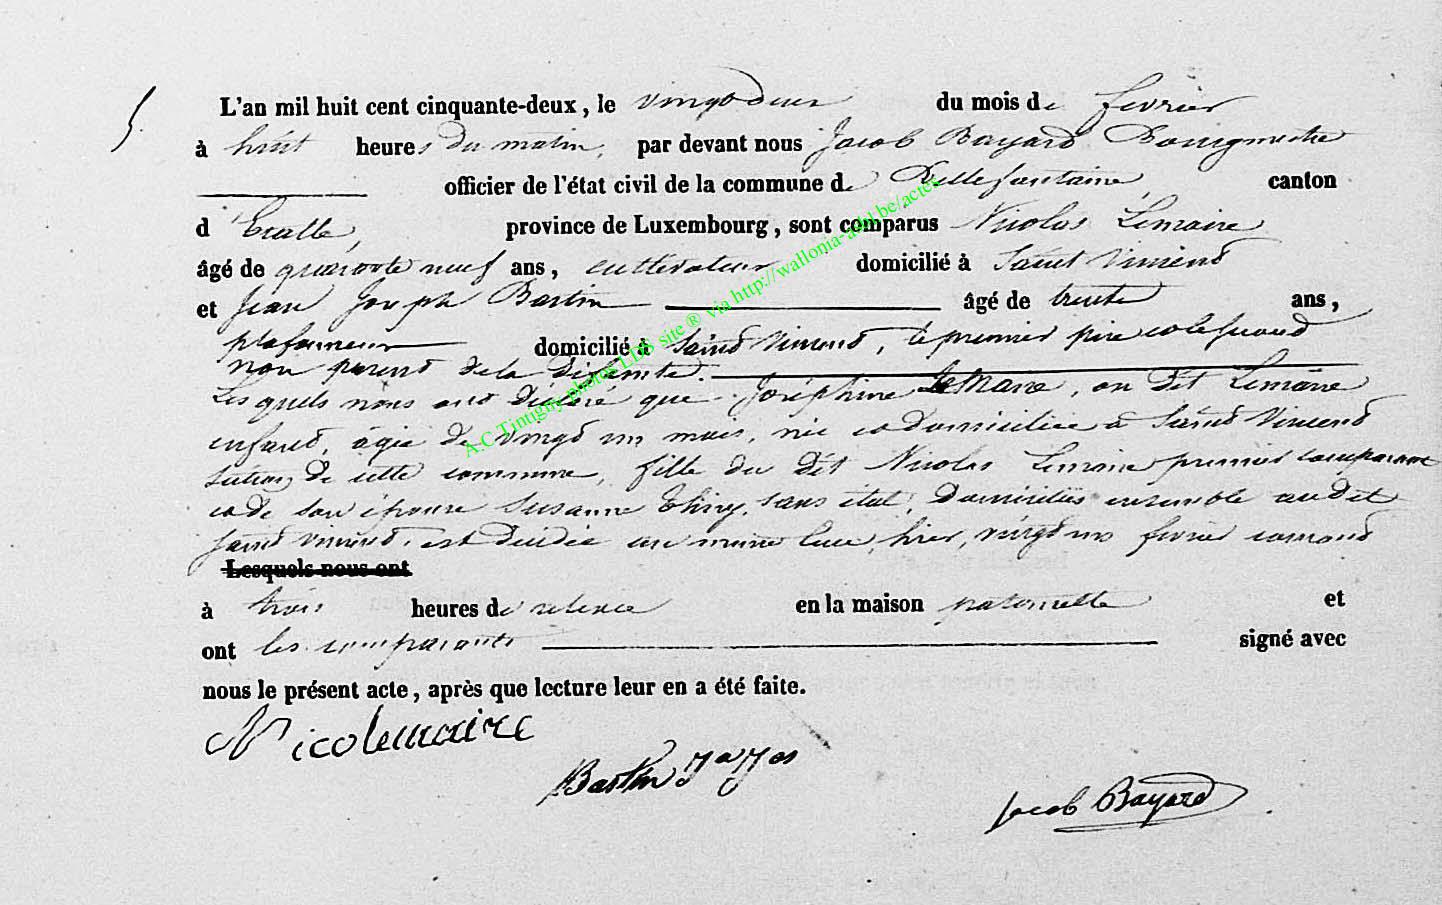 5.
L'an mil huit cent cinquante-deux, le vingt deux du mois de fevrier
à huit heures du matin, par devant nous Jacob Bayard Bourgmestre
officier de l'état civil de la commune de Bellefontaine, canton
d'Etalle, province de Luxembourg, sont comparus Nicolas Lemaire
âgé de quarante neuf ans, cultivateur domicilié à Saint Vincent
et Jean Joseph Bastin âgé de trente ans,
plafonneur domicilié à Saint Vincent, le premier père et le second
non parent de la défunte.
Lesquels nous ont déclaré que Joséphine ou dit Lemaire
enfant, agée de vingt un mois, née et domiciliée à Saint Vincent
section de cette commune, fille du dit Nicolas Lemaire premier comparant
et de son épouse Susanne Thiry, sans état, domiciliés ensemble audit
Saint Vincent, est décédée au même lieu, hier, vingt un fevrier courant
Lesquels nous ont
à trois heures de relevée en la maison paternelle et
ont les comparants signé avec
nous le présent acte, après que lecture leur en a été faite.
Nicolemaire
Bastin
Jacob Bayard
A.C.Tintigny photos LDS site ® via http://wallonia-asbl.be/actes